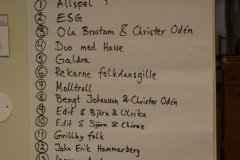 ① Allspel
② ESG
③ Ola Brostam & Christer Odén
④ Duo med Hasse
⑤ Galdra
⑥ Rekarne folkdansgille
⑦ Molltroll
⑧ Bengt Johansson & Christer Odén
⑨ Edit & Björn & Ulrika
⑩ Edit & Björn &
⑪ Grillby folk
⑫ John Erik Hammarberg
⑬